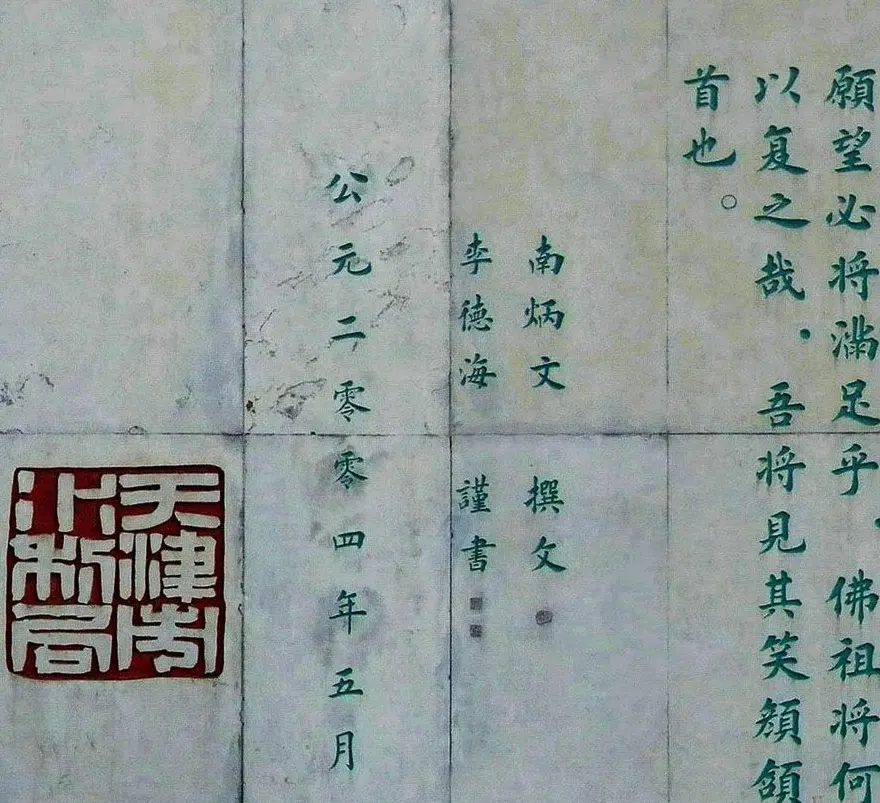 願望必将滿足乎，佛祖将何
以复之哉，吾将見其笑顔頷
首也。
南炳文 撰文
李德海 謹書
公元二零零四年五月
天津市